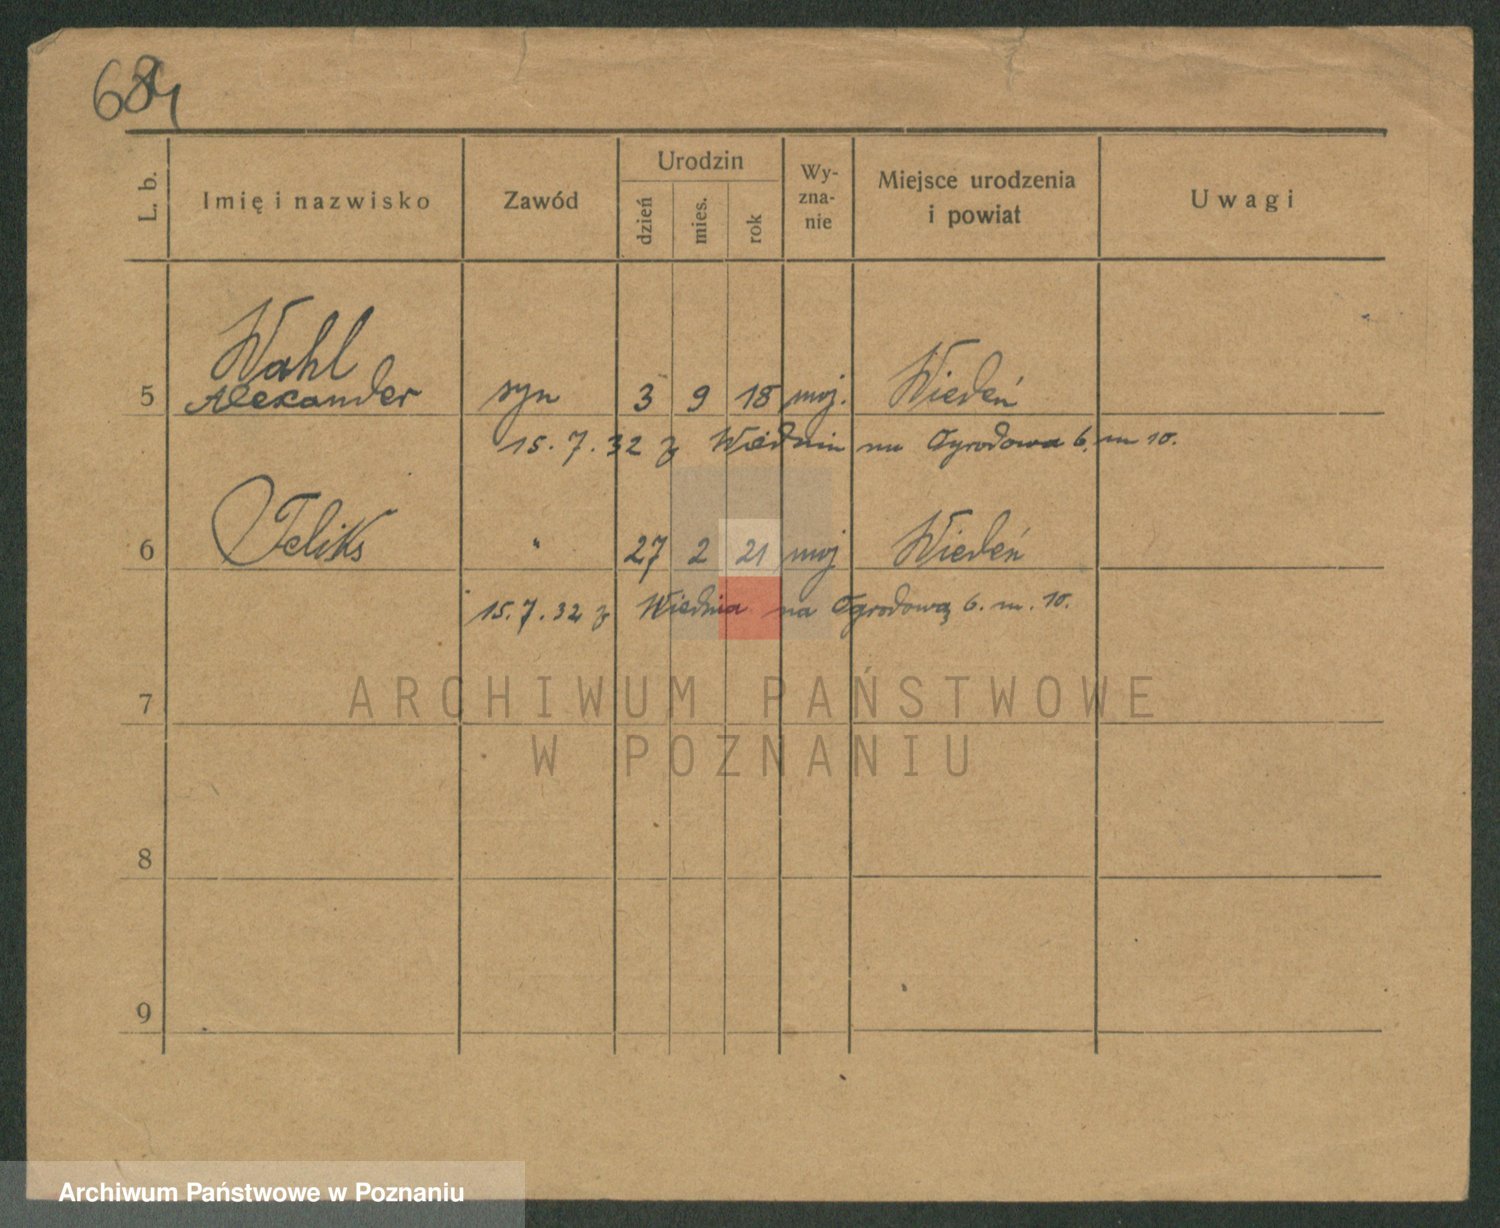 684
L. b.
Imię i nazwisko
Zawód
Urodzin
dzień
mies.
rok
Wy-
zna-
nie
Miejsce urodzenia
i powiat
Uwagi
Wahl
5 Alexander syn 3 9 18 moj. Wiedeń
15. 7. 32 z Wiednia na Ogrodowa 6. m 10.
6 Feliks " 27 2 21 moj Wiedeń
15. 7. 32 z Wiednia na Ogrodową 6. m. 10.
7
8
9
ARCHIWUM PAŃSTWOWE
W POZNANIU
Archiwum Państwowe w Poznaniu